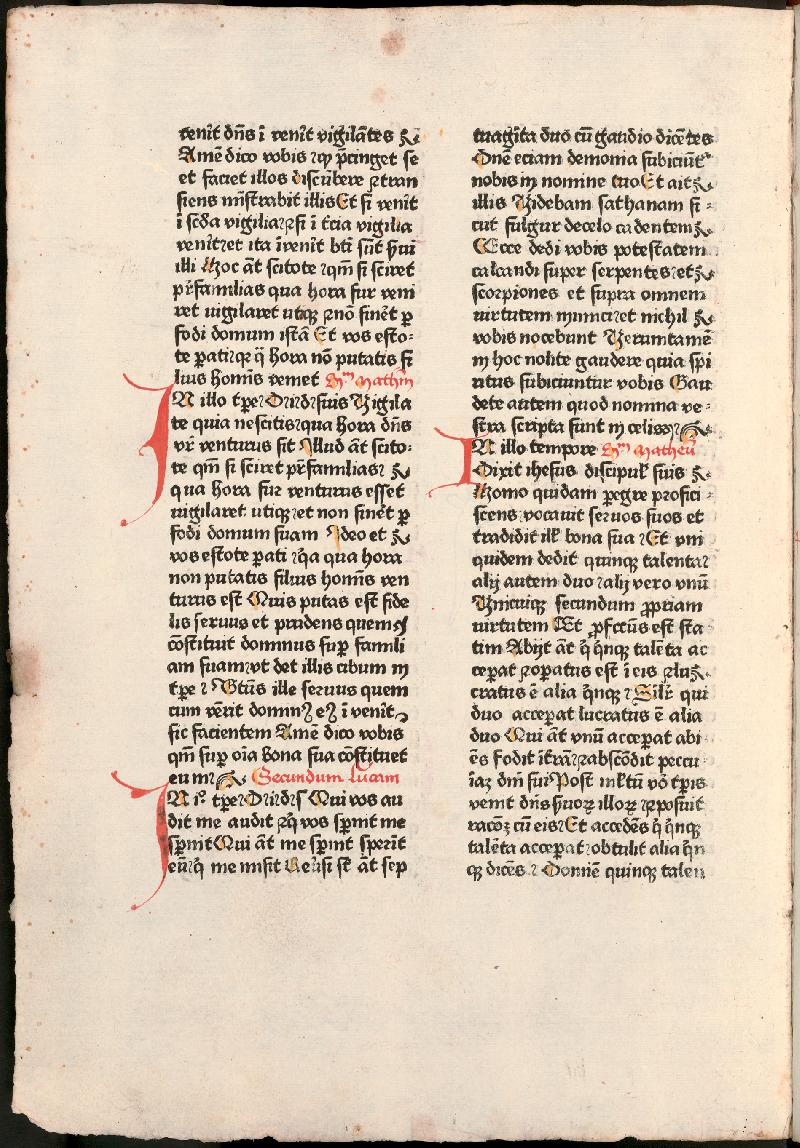 venit dn̄s ī venīt vigilātes
Amē dico vobis qꝫ p̄cinget se
et faciet illos discūbere ⁊tran
siens mīstrabit illis Et si venīt
ī scd̄a vigilia⁊si ī t̄cia vigilia
venīt⁊et ita īvenīt bti sūt s̄ui
illi Hoc āt scitote ⁊qm̄ si sciret
pr̄familias qua hora fur veni
ret uigilaret utiqꝫ ⁊nō sinēt ꝑ
fodi domum istā Et vos esto⸗
te ꝑati⁊qꝫ q̄ hora nō putatis fi
lius homīs veniet Sᵐ mathm̄
IN illo tꝑe Dix̄ ih̄s dis suis Vigila
te quia nescitis qua hora dn̄s
vr̄ venturus sit Illud āt scito⸗
te qm̄ si sciret pr̄familias⁊
qua hora fur venturus esset
uigilaret utiqꝫ⁊et non sinēt ꝑ
fodi domum suam Ideo et
vos estote ꝑati ⁊q̄a qua hora
non putatis filius homīs ven
turus est Quis putas est fide
lis seruus et prudens quem
cōstituit dominus suꝑ famili
am suam⁊vt det illis cibum in
tꝑe ⁊ Btūs ille seruus quem
cum vēnit domin⁹ ei⁹ ī venīt
sic facientem Amē dico vobis
qm̄ suꝑ oīa bona sua cōstituet
eum Secundum lucam
IN i° tꝑe Dix̄ ih̄s dis Qui vos au
dit me audit ⁊q̄ vos sꝑnit me
sꝑnit Qui āt me sꝑnit sꝑnīt
eū⁊q̄ me misit Reūsi st̄ āt sep
tuagīta duo cū gaudio dicētes
Dnē eciam demonia subiciūt
nobis in nomine tuo Et ait
illis Videbam sathanam si⸗
cut fulgur decelo cadentem
Ecce dedi vobis potestatem
calcandi super serpentes⁊et
scorpiones et supra omnem
uirtutem inimici⁊et nichil
vobis nocebunt Verumtamē
in hoc nolite gaudere quia spi
ritus subiciuntur vobis Gau
dete autem quod nomina ve⸗
stra scripta sunt in celis
IN illo tempore Sᵐ matheū
Dixit ihesus discipul̄ suis
Homo quidam peregre profici⸗
scens⁊vocauit seruos suos et
tradidit ill̄ bona sua⁊Et vni
quidem dedit quinqꝫ talenta⁊
alij autem duo⁊alij vero vnū
Vnicuiqꝫ secundum ꝓpriam
uirtutem Et ꝓfectus est sta
tim Abijt āt q̄ q̄nqꝫ talēta ac
ceꝑat ⁊oꝑatus est ī eis ⁊lu
cratus ē alia q̄nqꝫ ⁊Silr̄ qui
duo acceꝑat lucratus ē alia
duo Qui āt vnū acceꝑat abi⸗
ēs fodit ītrā⁊⁊abscōdit peccu⸗
iaꝫ dn̄i sui⁊Post m̄ltū v̄o tꝑis
venit dn̄s s̄uoꝝ illoꝝ ⁊⁊posuit
racōꝫ cū eis⁊Et accedēs q̄ q̄nqꝫ
talēta acceꝑat⁊obtulit alia q̄n
qꝫ dicēs ⁊ Domīe quinqꝫ talen